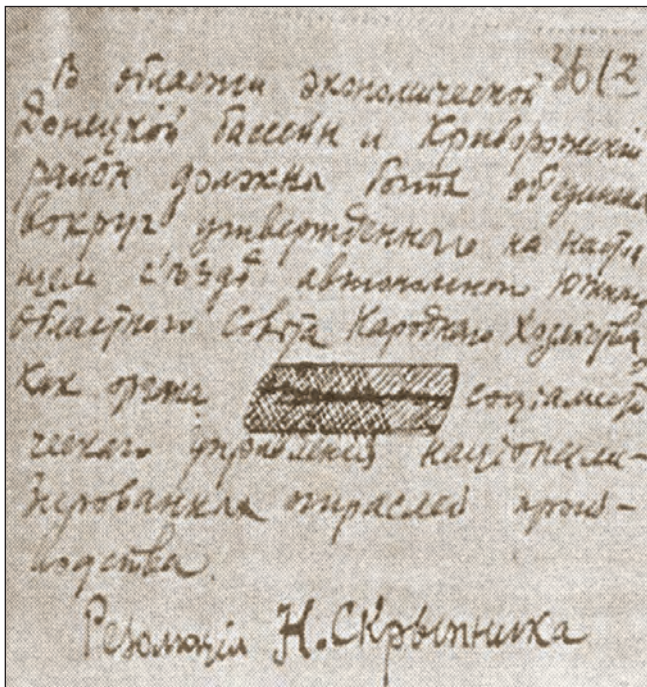 В области экономической 36/2
Донецкой бассейн и Криворожский
район должна быть обединена
вокруг утвержденного на настоя
щем съезде автономном Южного
областного Совета Народного Хозяйства
как органа социалисти
ческого управления национали-
зированных отраслей произ-
водства.
Резолюція Н. Скрыпника